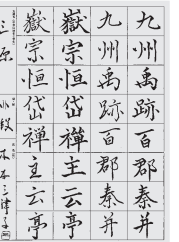 九州禹跡百郡秦并
九州禹跡百郡秦并
嶽宗恒岱禅主云亭
嶽宗恒岱禅主云亭
三原